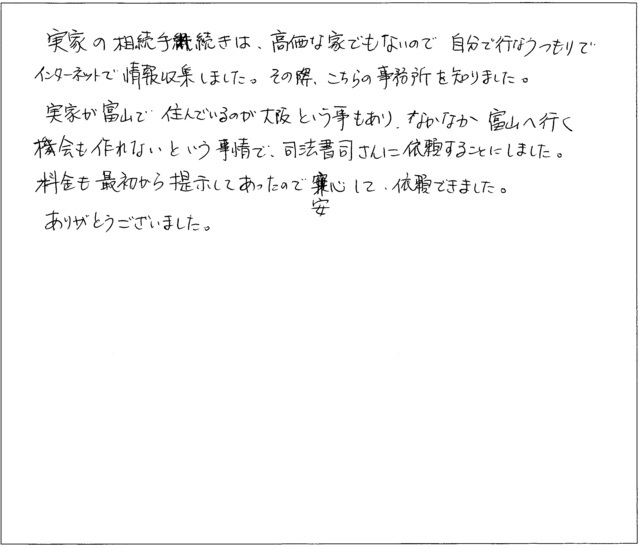 実家の相続手続きは、高価な家でもないので 自分で行なうつもりで
インターネットで 情報収集しました。その際、こちらの事務所を知りました。
実家が富山で 住んでいるのが大阪という事もあり、なかなか 富山へ行く
機会も作れないという事情で、司法書司さんに依頼することにしました。
料金も最初から提示してあったので 安心して、依頼できました。
ありがとうございました。